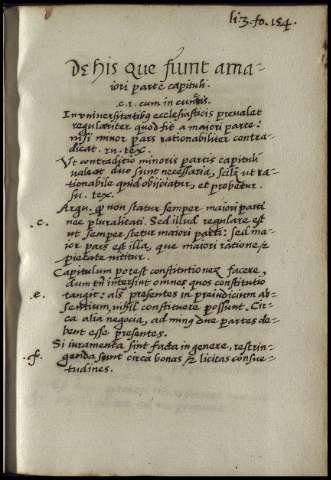 li. 3. fo. 184.
De his que fiunt a ma-
iori parte capituli.
c. 1. cum in cunctis.
In vniuersitatibus ecclesiasticis preualet
regulariter quod fit a maiori parte:
nisi minor pars rationabiliter contra-
dicat. su. tex.
Vt contraditio minoris partis capituli
valeat duo sunt necessaria, scilz ut ra-
tionabile quid obijciatur, et probetur.
su. tex.
Argu. q non statur semper maiori parti
c. nec pluralitati. Sed illud regulare est
ut semper stetur maiori parti: sed ma-
ior pars est illa, que maiori ratione &
pietate nititur.
Capitulum potest constitutionez facere,
dum tn intersint omnes quos constitutio
.e. tangit: als presentes in preiudicium ab-
sentium, nihil constituere possunt. Cir-
ca alia negocia, ad minus due partes de-
bent esse presentes.
Si iuramenta sint facta in genere, restrin-
.f. genda sunt circa bonas & licitas consue-
tudines.